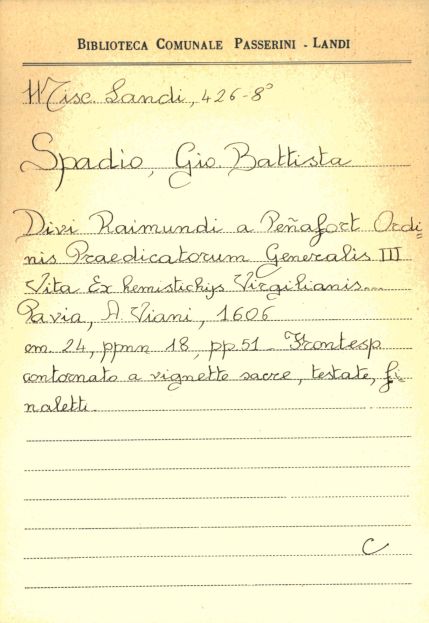 BIBLIOTECA COMUNALE PASSERINI - LANDI
Misc. Landi, 426-8°
Spadio, Gio. Battista
Divi Raimundi a Peñafort Ordi=
nis Praedicatorum Generalis III
Vita Ex hemistichijs Virgilianis...
Pavia, A. Viani, 1606
cm. 24, ppnn 18, pp 51 - Frontesp
contornato a vignette sacre, testate, fi-
naletti.
C